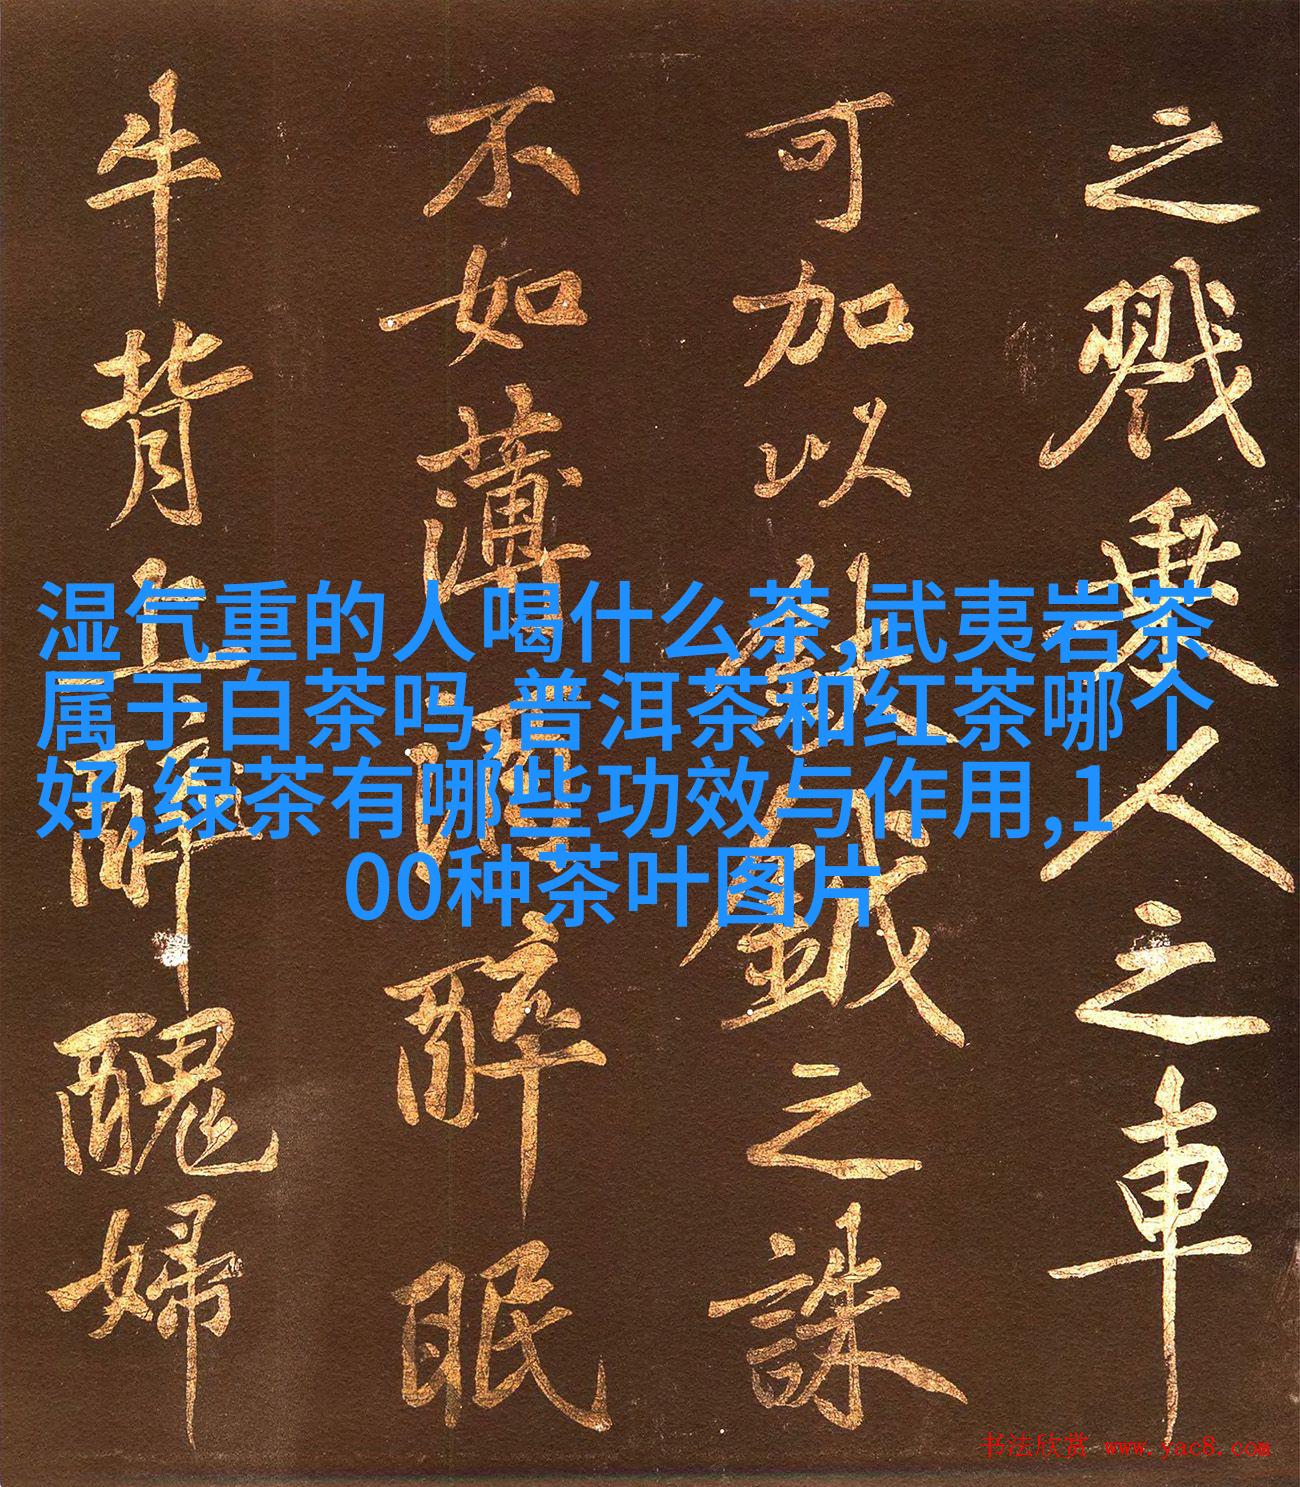 之戮乘人之車
可加以鈇鉞之誅
不如薄酒醉眠
牛背上醉醜婦
湿气重的人喝什么茶,武夷岩茶
属于白茶吗,普洱茶和红茶哪个
好,绿茶有哪些功效与作用,1
00种茶叶图片
书法欣赏 www.yac8.com